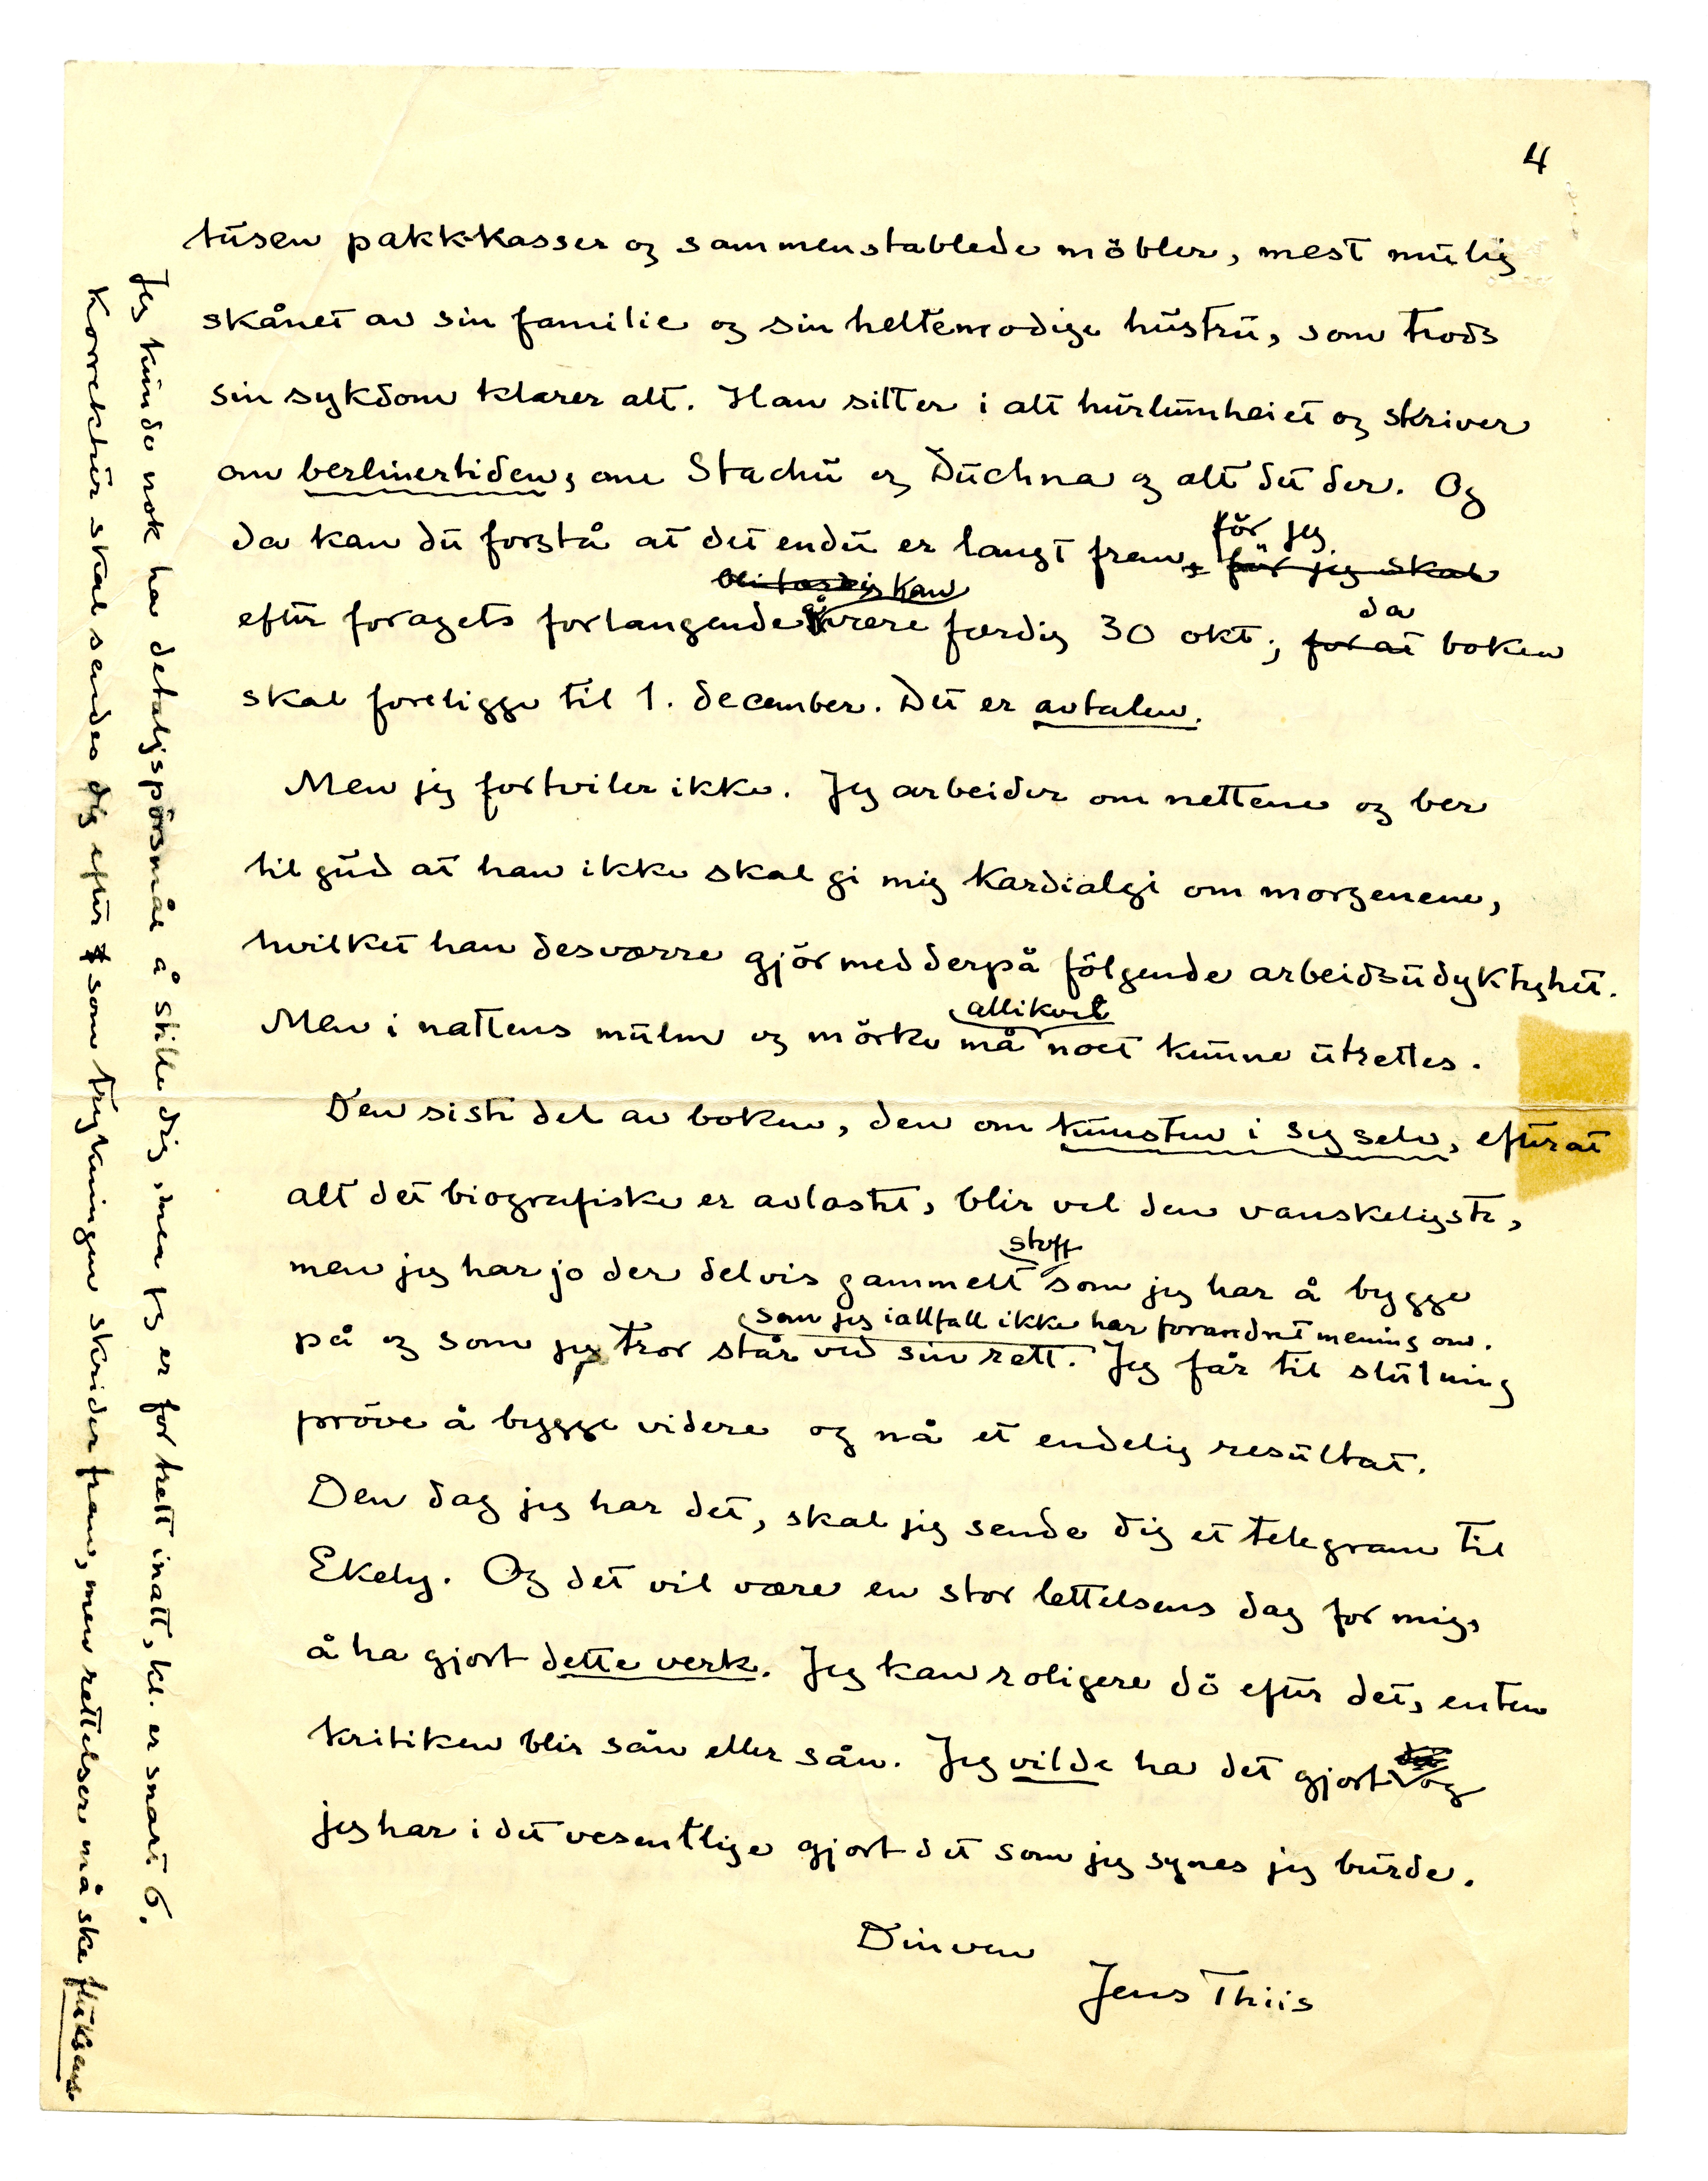 4
tusen pakk-kasser og sammenstablede möbler, mest mulig
skånet av sin familie og sin heltemodige hustru, som trods
sin sykdom klarer alt. Han sitter i alt hurlumheiet og skriver
om berlinertiden, om Stachu og Duchna og alt det der. Og
da kan du forstå at det endu er langt frem, för jeg för jeg skal
efter foragets forlangende kan være færdig 30 okt; for at da boken
skal foreligge til 1. december. Det er avtalen.
Men jeg fortviler ikke. Jeg arbeider om nettene og ber
til gud at han ikke skal gi mig kardialgi om morgenene,
hvilket han desværre gjör med derpå fölgende arbeidsudyktighet.
Men i nattens mulm og mörke må allikvel noet kunne utrettes.
Den siste del av boken, den om kunsten i sig selv, efterat
alt det biografiske er avlastet, blir vel den vanskeligste,
men jeg har jo der delvis gammelt stoff som jeg har å bygge
på og som jeg tror står ved sin rett. som jeg iallfall ikke har forandret mening om. Jeg får til slutning
pröve å bygge videre og nå et endelig resultat.
Den dag jeg har det, skal jeg sende dig et telegram til
Ekely. Og det vil være en stor lettelsens dag for mig,
å ha gjort dette verk. Jeg kan roligere dö efter det, enten
kritiken blir sån eller sån. Jeg vilde ha det gjort og
jeg har i det vesentlige gjort det som jeg synes jeg burde.
Din ven
Jens Thiis
Jeg kunde nok ha detaljspörsmål å stille dig, men jeg er for trett inatt, kl. er snart 6.
Korrektur skal sendes dig efter som trykningen skrider frem, men rettelser må ske fluksens.